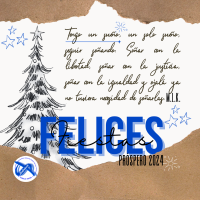 "Tengo un sueño, un solo sueño,
seguir soñando. Soñar con la
libertad, soñar con la justicia,
soñar con la igualdad y ojalá ya
no tuviera necesidad de soñarlas" M.L.K.
FELICES
Fiestas
PRÓSPERO 2024